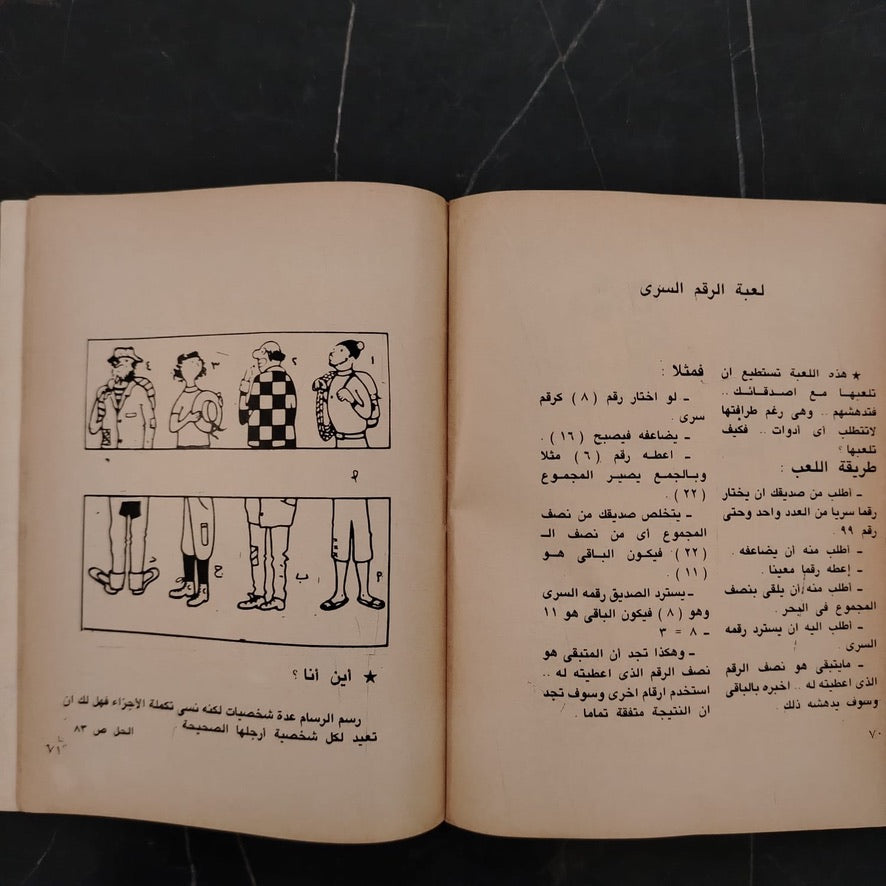 لعبة الرقم السرى
★ هذه اللعبة تستطيع ان
تلعبها مع اصدقائك ..
فتدهشهم .. وهى رغم طرافتها
لاتتطلب أى أدوات .. فكيف
تلعبها ؟
طريقة اللعب :
ـ اطلب من صديقك ان يختار
رقما سريا من العدد واحد وحتى
رقم ٩٩ .
ـ أطلب منه أن يضاعفه .
ـ إعطه رقما معينا .
ـ أطلب منه أن يلقى بنصف
المجموع فى البحر .
ـ أطلب اليه ان يسترد رقمه
السرى .
ـ مايتبقى هو نصف الرقم
الذى اعطيته له .. اخبره بالباقى
وسوف يدهشه ذلك .
فمثلا :
ـ لو اختار رقم ( ٨ ) كرقم
سرى .
ـ يضاعفه فيصبح ( ١٦ ) .
ـ اعطه رقم ( ٦ ) مثلا
وبالجمع يصير المجموع
( ٢٢ ) .
ـ يتخلص صديقك من نصف
المجموع أى من نصف الـ
( ٢٢ ) فيكون الباقى هو
( ١١ ) .
ـ يسترد الصديق رقمه السرى
وهو ( ٨ ) فيكون الباقى هو ١١
ـ ٨ = ٣
ـ وهكذا تجد أن المتبقى هو
نصف الرقم الذى اعطيته له ..
استخدم ارقام اخرى وسوف تجد
ان النتيجة متفقة تماما .
٧٠
١ ٢ ٣ ٤
م
م ب ح د
★ أين أنا ؟
رسم الرسام عدة شخصيات لكنه نسى تكملة الأجزاء فهل لك ان
تعيد لكل شخصية أرجلها الصحيحة
الحل ص ٨٣
٧١